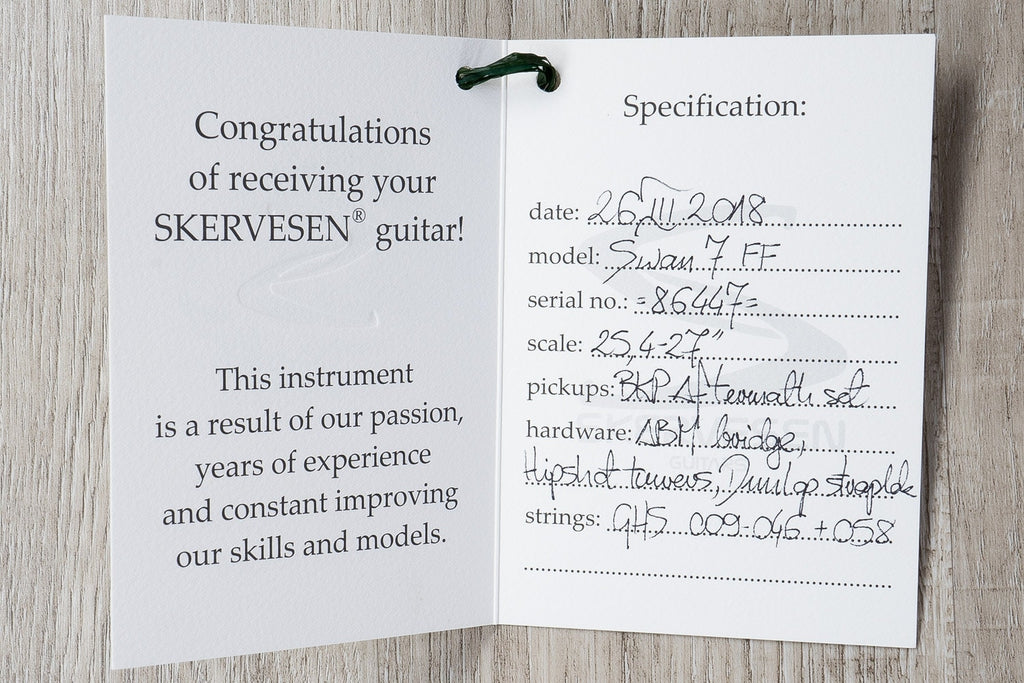 Congratulations
of receiving your
SKERVESEN® guitar!
This instrument
is a result of our passion,
years of experience
and constant improving
our skills and models.
Specification:
date: 26 III 2018
model: Swan 7 FF
serial no.: =86447=
scale: 25,4-27"
pickups: BKP Aftermath set
hardware: ABM bridge,
Hipshot tuners, Dunlop straplok
strings: GHS 009-046 + 058
SKERVESEN
GUITARS